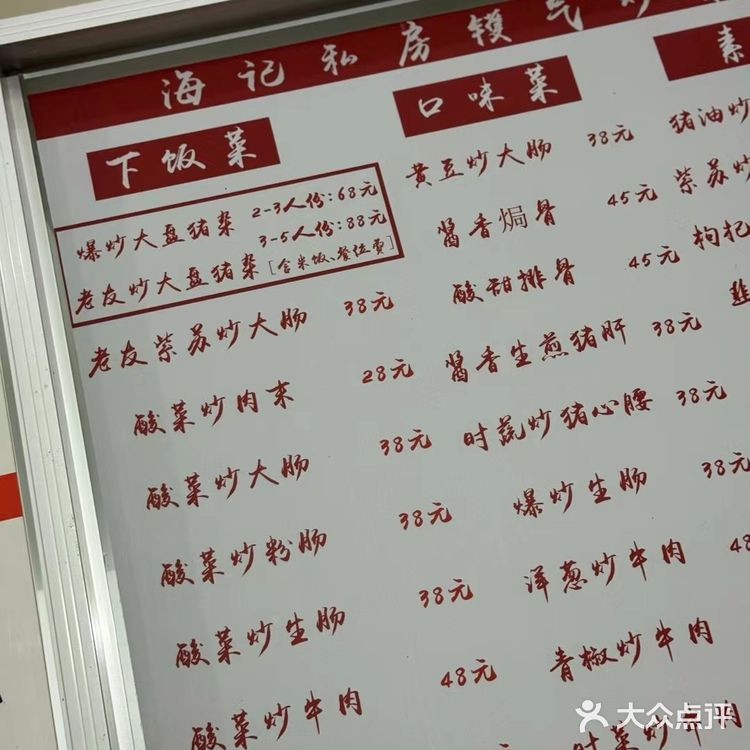 海记私房镬气炒
下饭菜
爆炒大盘猪杂 2-3人份:68元
老友炒大盘猪杂 3-5人份:88元
[含米饭、餐位费]
老友紫苏炒大肠 38元
酸菜炒肉末 28元
酸菜炒大肠 38元
酸菜炒粉肠 38元
酸菜炒生肠 38元
酸菜炒牛肉 48元
口味菜
黄豆炒大肠 38元
酱香焗骨 45元
酸甜排骨 45元
酱香生煎猪肝 38元
时蔬炒猪心腰 38元
爆炒生肠 38元
洋葱炒牛肉 48
青椒炒牛肉
炒牛肉
素
猪油炒
紫苏炒
枸杞
韭
大众点评